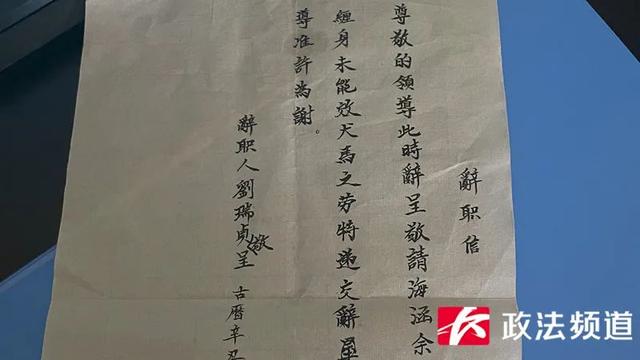 辭职信
尊敬的領導此時辭呈敬請海涵余
纏身未能效犬馬之劳特递交辭
導准許為謝。
辭职人劉瑞貞敬呈 古曆辛丑
政法频道